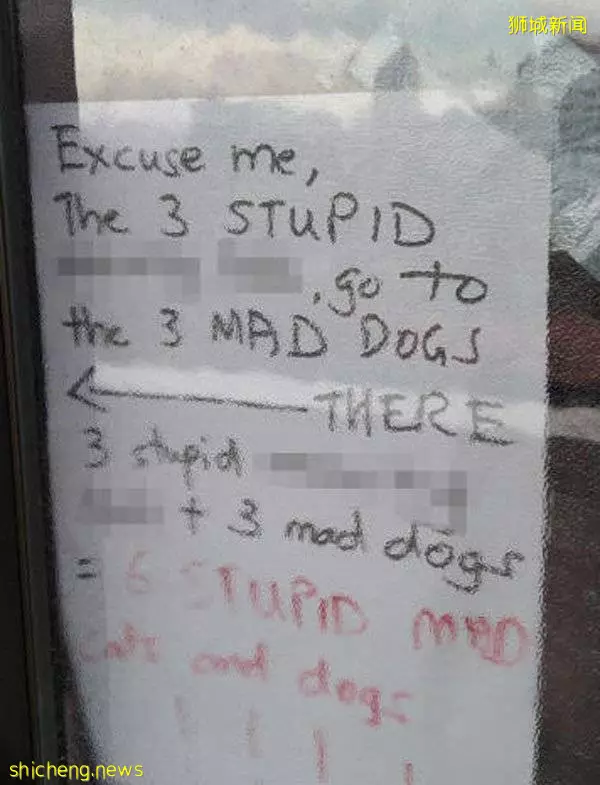 狮城新闻
Excuse me,
The 3 STUPID
, go to
the 3 MAD DOGS
← THERE
3 stupid
+ 3 mad dogs
= 6 STUPID MAD
Cats and dogs
! ! ! !
shicheng.news